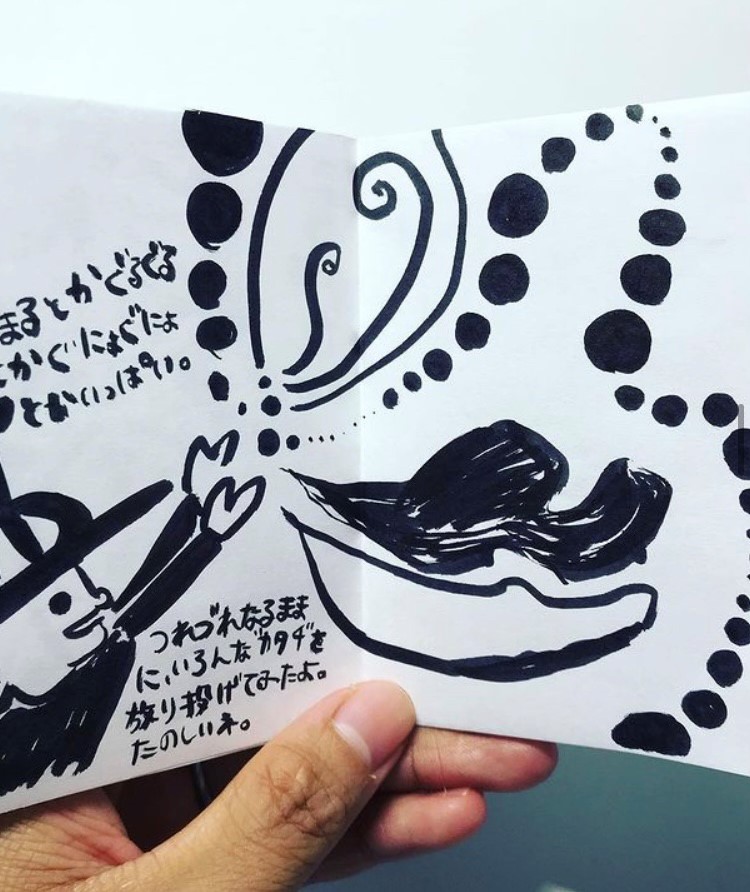 まるとかぐるぐる
とかぐにょぐにょ
とかいっぱい。
つれづれなるまま
に、いろんなカタチを
放り投げてみたよ。
たのしいネ。